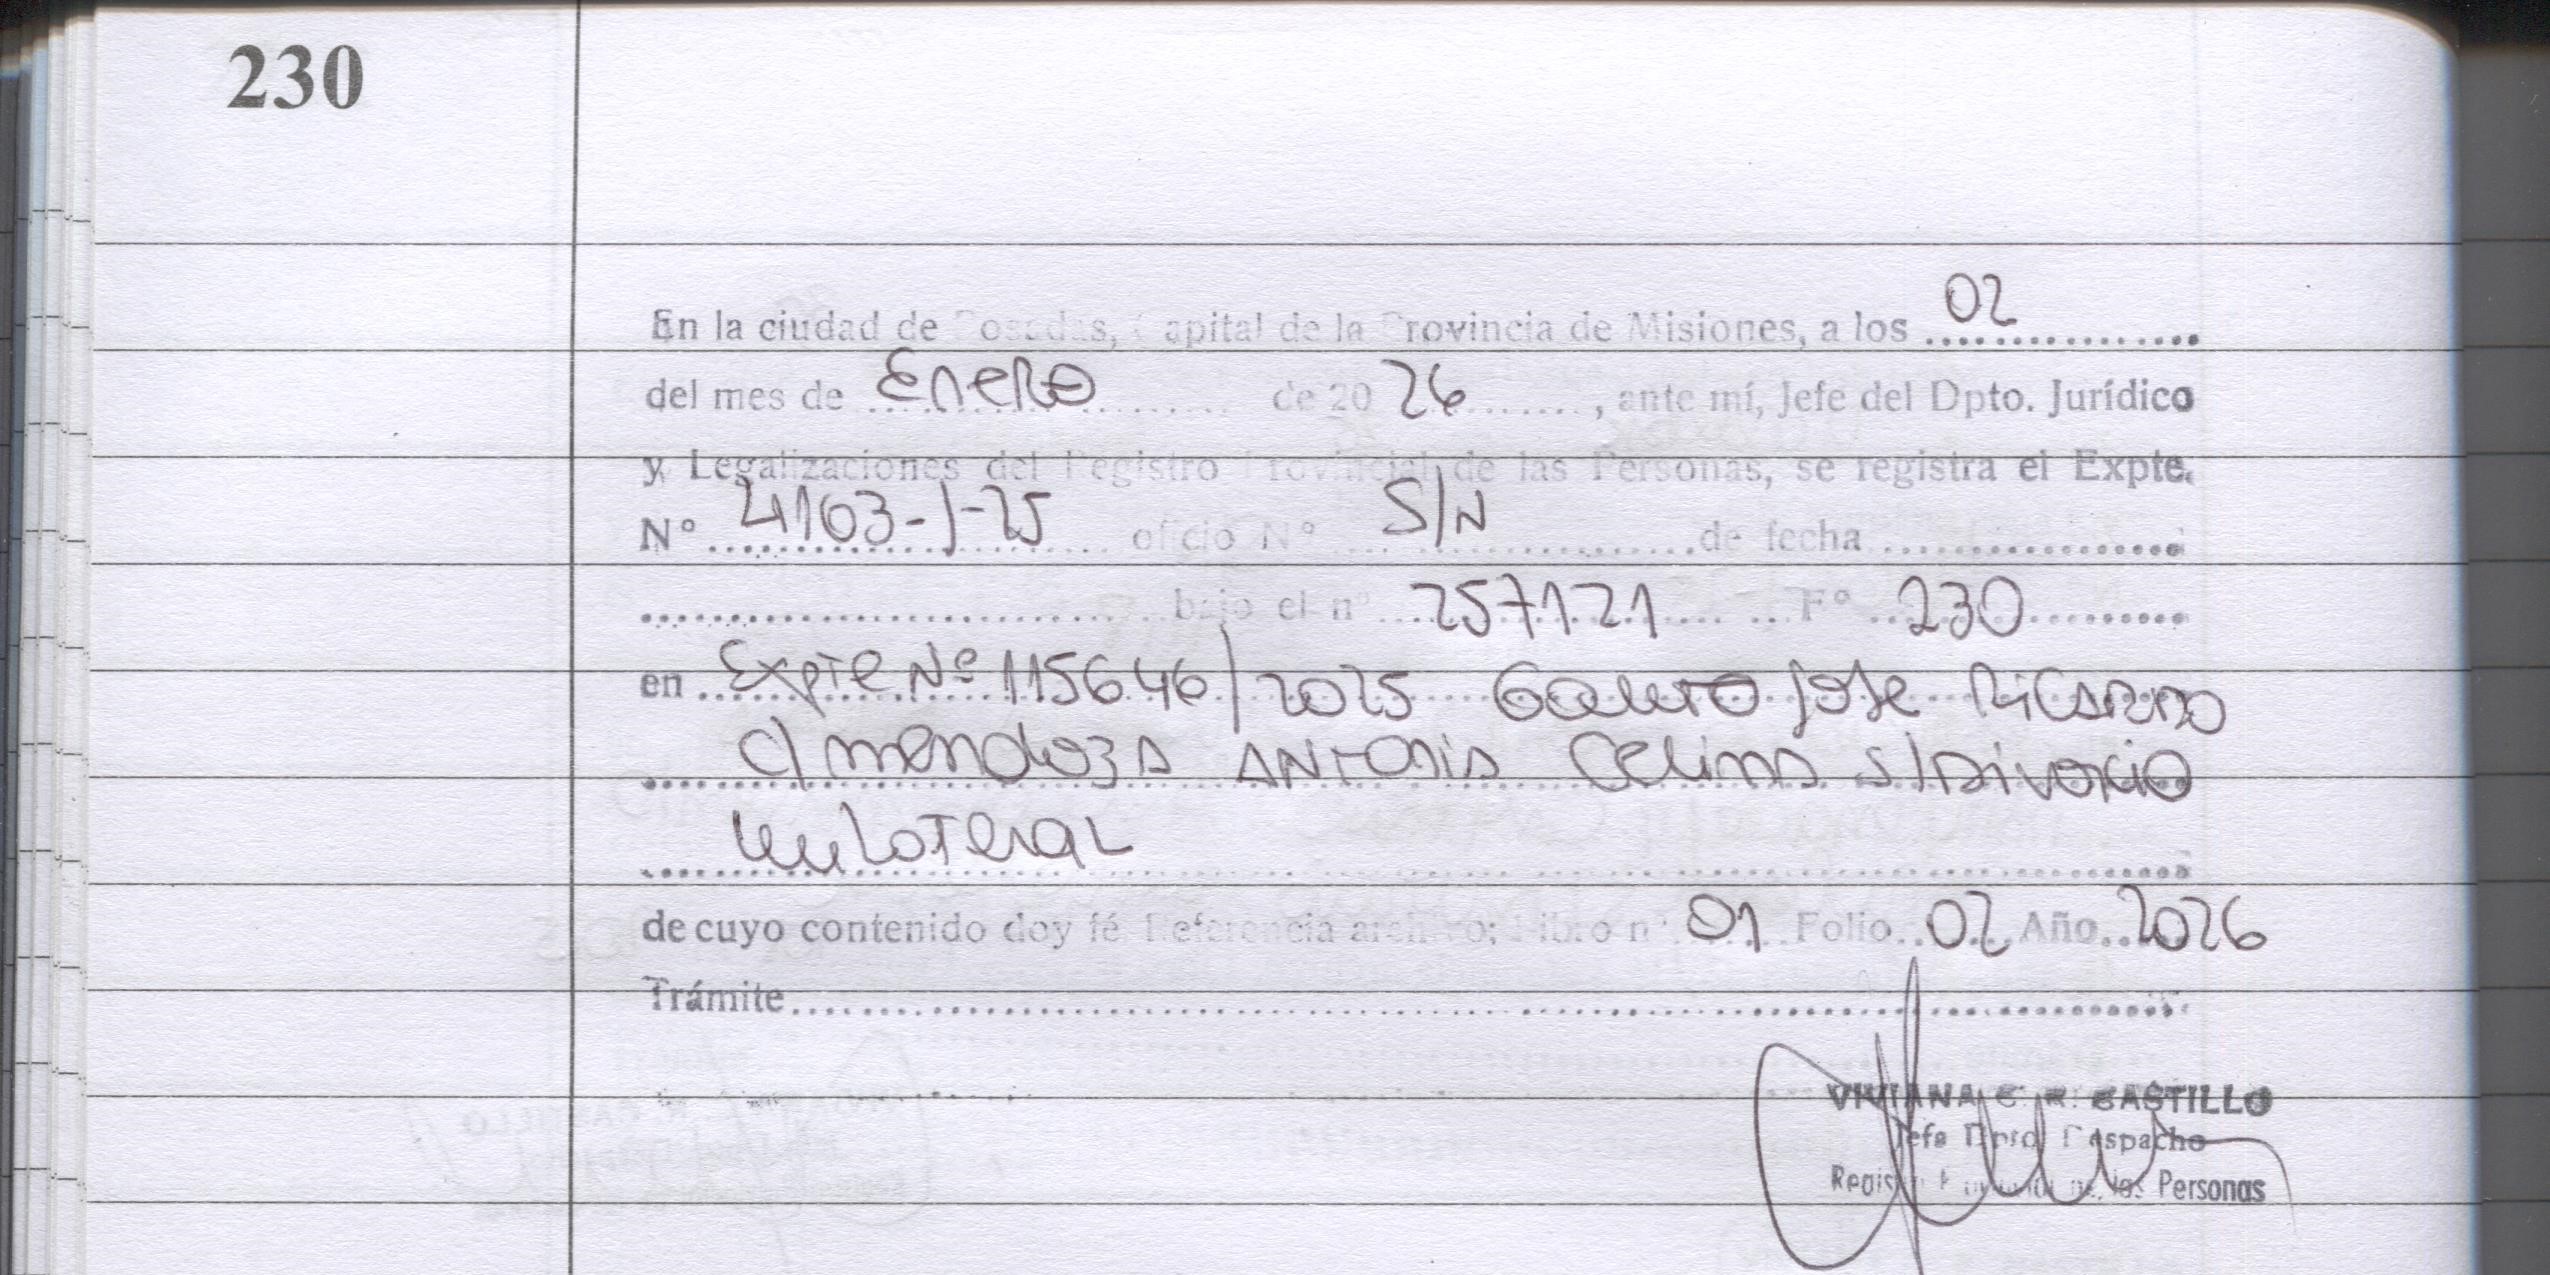 230
En la ciudad de Posadas, Capital de la Provincia de Misiones, a los 02
del mes de Enero de 20 26 , ante mí, Jefe del Dpto. Jurídico
y Legalizaciones del Registro Provincial de las Personas, se registra el Expte.
N° 4163-J-25 oficio N° S/N de fecha
bajo el n° 257121 F° 230
en Expte Nº 115646/2025 José Ricardo
c/ Mendoza Antonia Celina s/Divorcio
Unilateral
de cuyo contenido doy fé. Referencia archivo; Libro n° 01 Folio 02 Año 2026
Trámite
VIVIANA E. R. CASTILLO
Jefa Dpto. Despacho
Registro Provincial de las Personas